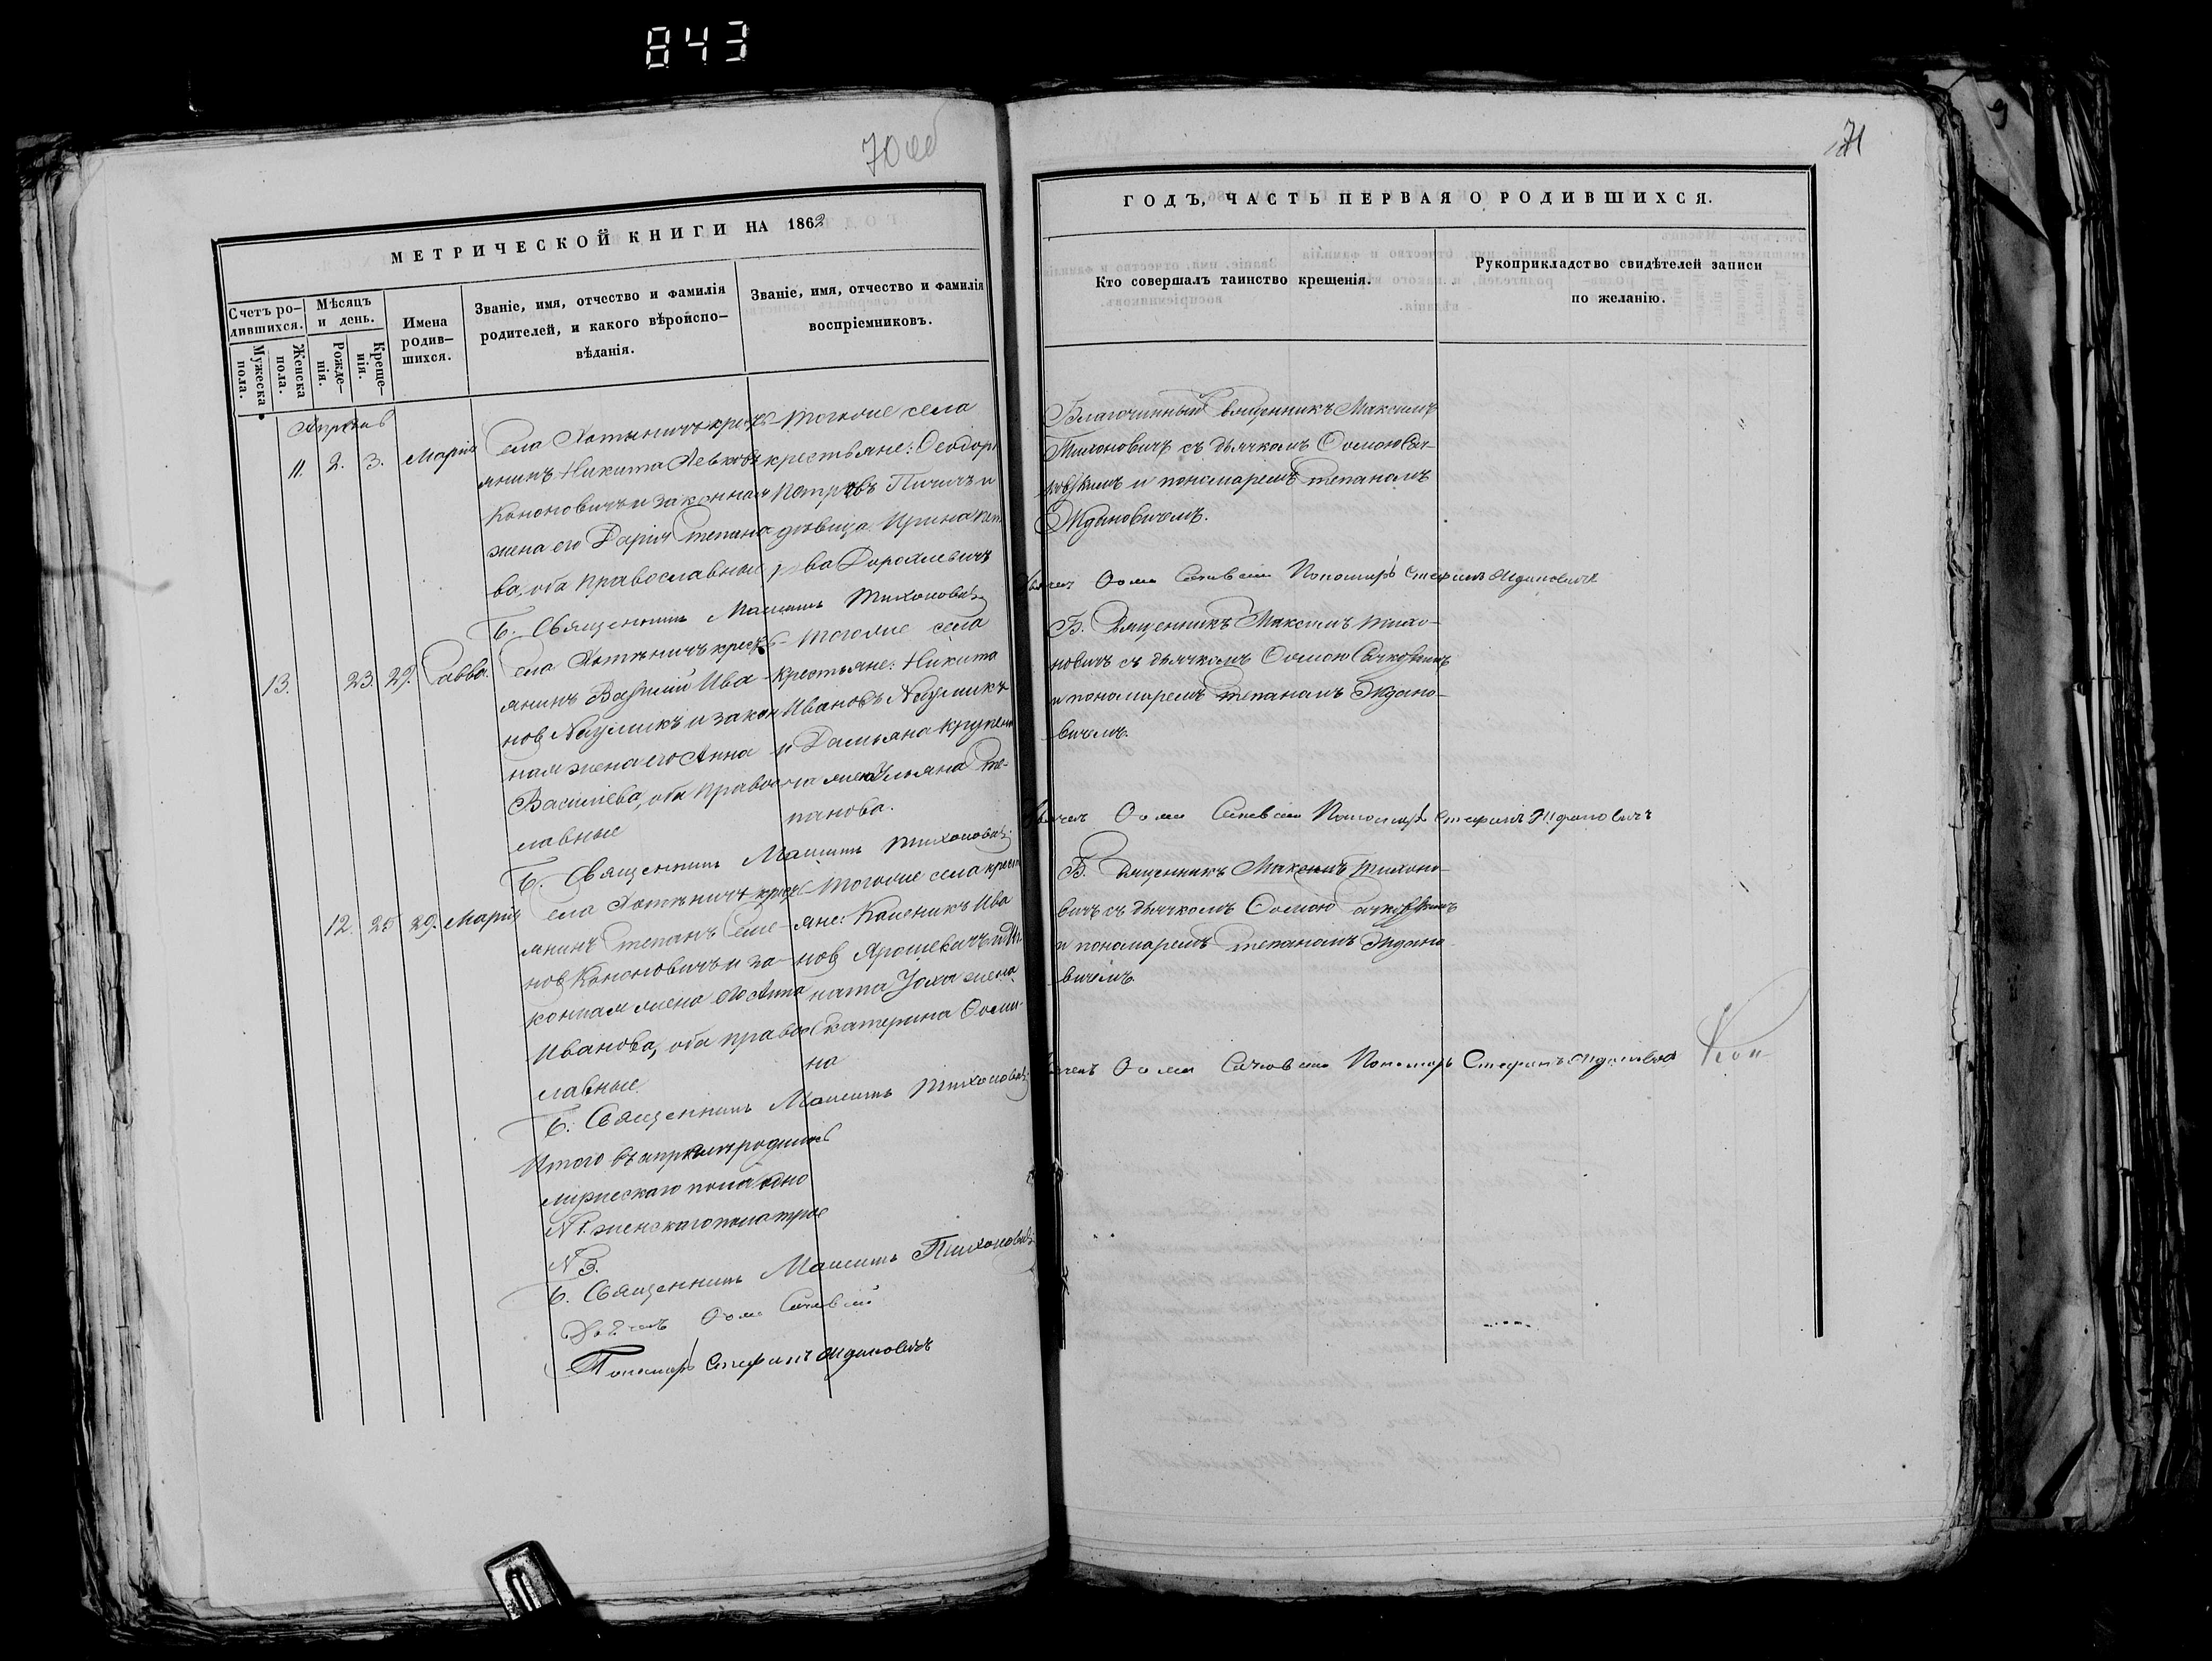 843
70 об
71
9
МЕТРИЧЕСКОЙ КНИГИ НА 1862
Счетъ ро-
дившихся.
Мужеска
пола.
Женска
пола.
Мѣсяцъ
и день.
Рожде-
нія.
Креще-
нія.
Имена
родив-
шихся.
Званіе, имя, отчество и фамилія
родителей, и какого вѣроиспо-
вѣданія.
Званіе, имя, отчество и фамилія
воспріемниковъ.
Апрѣль
11. 2. 3. Марія
Села Хотыничъ кресть-
янинъ Никита Левковъ
Кононовичъ и законная
жена его Дарія Степано
ва, оба православные
Тогоже села
крестьяне: Ѳеодоръ
Петровъ и
дѣвица Ирина
ва Дорошевичъ
Б. Священникъ Максимъ Тихоновичъ
13. 23. 29. Савва.
Села Хотыничъ кресть-
янинъ Василій Ива-
новъ Наумикъ и закон
ная жена его Анна
Василіева, оба правос
лавные
Тогоже села
крестьяне: Никита
Ивановъ Наумикъ
и Дамьяна
жена Ульяна Сте-
панова.
Б. Священникъ Максимъ Тихоновичъ
12. 25 29. Марія
Села Хотыничъ крест
янинъ Степанъ Семе-
новъ Кононовичъ и за-
конная жена его Анна
Иванова, оба правос
лавные.
Тогоже села крест
яне: Каленикъ Ива
новъ Ярошевичъ и Иг
ната жена
Екатерина Ѳоми-
на
Б. Священникъ Максимъ Тихоновичъ
Итого въ апрѣлѣ родилось
мужескаго пола одно
№ 1. женскаго пола трое
№ 3.
Б. Священникъ Максимъ Тихоновичъ
Дьячекъ Ѳома Сачковскій
Пономарь Стефанъ Ждановичъ
ГОДЪ, ЧАСТЬ ПЕРВАЯ О РОДИВШИХСЯ.
Кто совершалъ таинство крещенія.
Рукоприкладство свидѣтелей записи
по желанію.
Благочинный Священникъ Максимъ
Тихоновичъ съ дьячкомъ Ѳомою Сач-
ковскимъ и пономаремъ Степаномъ
Ждановичемъ.
Дьячекъ Ѳома Сачковскій Пономарь Стефанъ Ждановичъ
Б. Священникъ Максимъ Тихо-
новичъ съ дьячкомъ Ѳомою Сачковскимъ
и пономаремъ Степаномъ Ждано-
вичемъ.
Дьячекъ Ѳома Сачковскій Пономарь Стефанъ Ждановичъ
Б. Священникъ Максимъ Тихоно-
вичъ съ дьячкомъ Ѳомою Сачковскимъ
и пономаремъ Степаномъ Ждано
вичемъ
Дьячекъ Ѳома Сачковскій Пономарь Стефанъ Ждановичъ